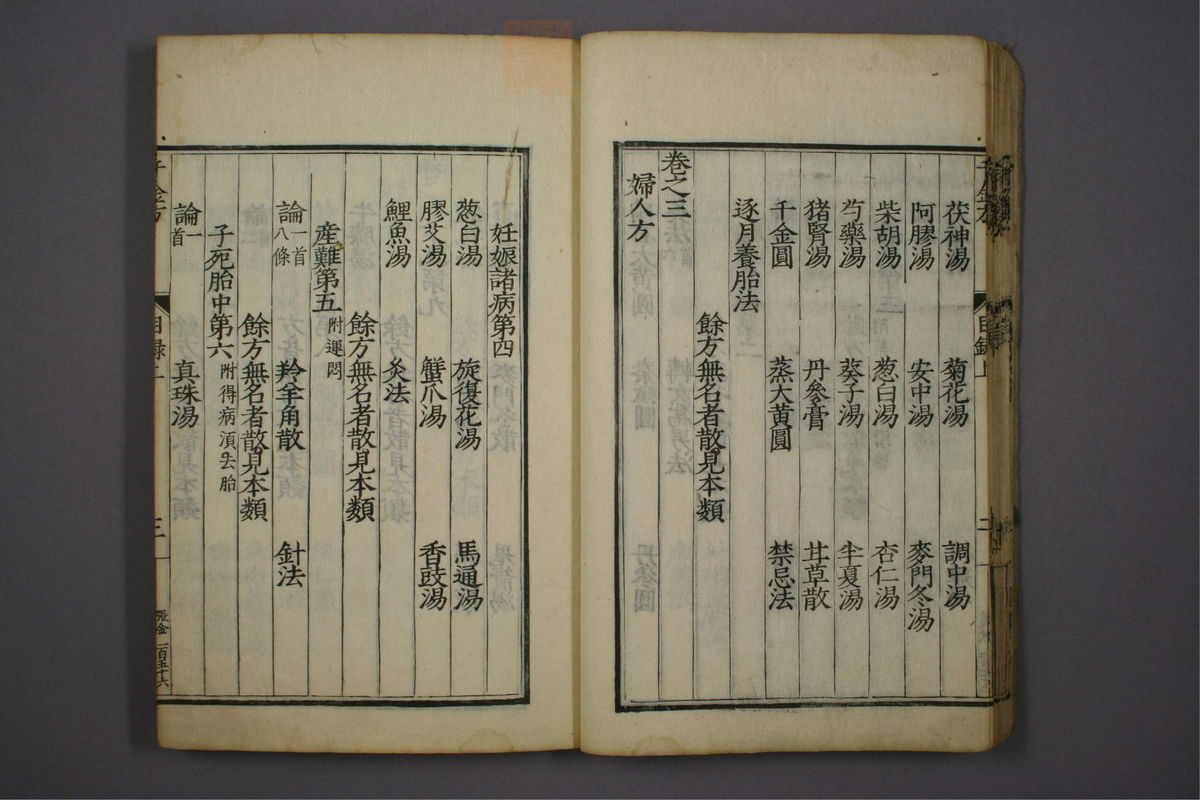 茯神湯　菊花湯　調中湯
阿膠湯　安中湯　麥門冬湯
柴胡湯　葱白湯　杏仁湯
芍藥湯　葵子湯　半夏湯
猪腎湯　丹參膏　甘草散
千金圓　蒸大黃圓　禁忌法
逐月養胎法
餘方無名者散見本類
卷之三
婦人方
妊娠諸病第四
葱白湯　旋復花湯　馬通湯
膠艾湯　蟹爪湯　香豉湯
鯉魚湯　灸法
餘方無名者散見本類
産難第五 附運悶
論一首八條　羚羊角散　針法
餘方無名者散見本類
子死胎中第六 附得病湏去胎
論一首　真珠湯
三
張金 一百五十六